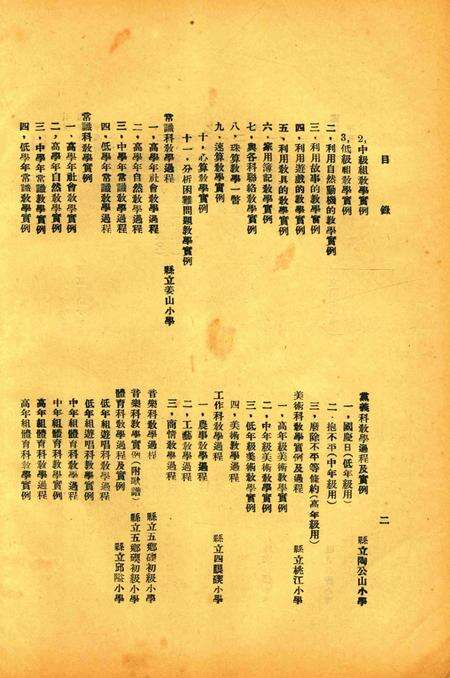 目錄
二
2,中級組教學實例
3,低級組教學實例
二,利用自然動機的教學實例
三,利用故事的教學實例
四,利用遊戲的教學實例
五,利用教具的教學實例
六,家用簿記教學實例
七,與各科聯絡教學實例
八,珠算教學一瞥
九,速算教學實例
十,心算教學實例
十一,分析困難問題教學實例
常識科教學過程 縣立姜山小學
一,高學年社會教學過程
二,高學年自然教學過程
三,中學年常識教學過程
四,低學年常識教學過程
常識科教學實例
一,高學年社會教學實例
二,高學年自然教學實例
三,中學年常識教學實例
四,低學年常識教學實例
黨義科教學過程及實例 縣立陶公山小學
一,國慶日(低年級用)
二,抱不平(中年級用)
三,廢除不平等條約(高年級用)
美術科教學實例及過程 縣立桃江小學
一,高年級美術教學實例
二,中年級美術教學實例
三,低年級美術教學實例
四,美術教學過程
工作科教學過程 縣立四眼碶小學
一,農事教學過程
二,工藝教學過程
三,商情教學過程
音樂科教學過程 縣立五鄉碶初級小學
音樂科教學實例(附歌譜) 縣立五鄉碶初級小學
體育科教學過程及實例 縣立邱隘小學
低年組遊唱科教學過程
低年組遊唱科教學實例
中年組體育科教學過程
中年組體育科教學實例
高年組體育科教學過程
高年組體育科教學實例